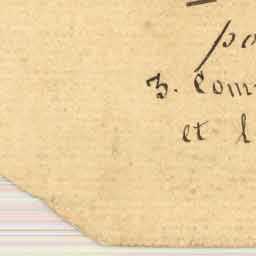 po
3. Com
et l